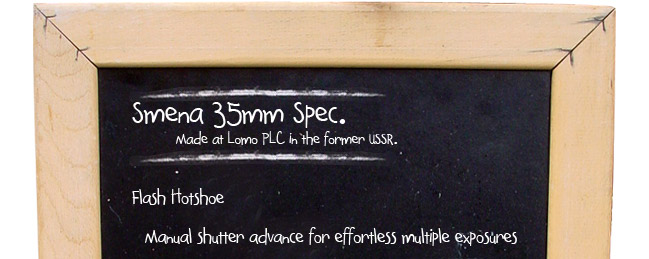 Smena 35mm Spec.
Made at Lomo PLC in the former USSR.
Flash Hotshoe
Manual shutter advance for effortless multiple exposures